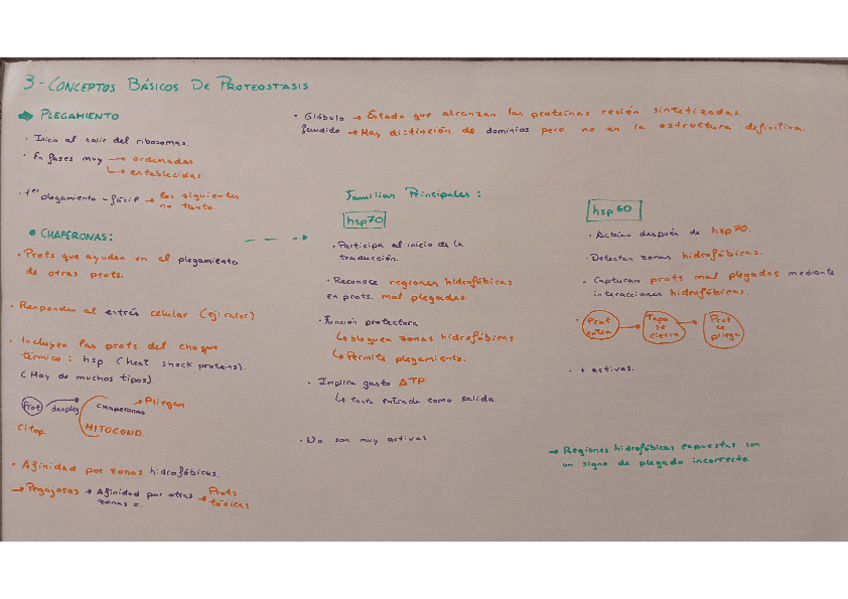 3-CONCEPTOS BÁSICOS DE PROTEOSTASIS
PLEGAMIENTO
· Inicio al salir del ribosomas.
· En fases muy → ordenadas
↳ establecidas
· 1er plegamiento - fácil → los siguientes
no tanto.
· Glóbulo → Estado que alcanzan las proteínas recién sintetizadas.
fundido → Hay distinción de dominios pero no en la estructura definitiva.
• CHAPERONAS:
· Prots que ayudan en el plegamiento
de otras prots.
· Responden al estrés celular (ej: calor)
· Incluyen las prots del choque
térmico: hsp (heat shock proteins).
(Hay de muchos tipos).
Prot despleg CHAPERONAS → Pliegan
Citop MITOCOND.
· Afinidad por zonas hidrofóbicas.
→ Pegajosas → Afinidad por otras → Prots
zonas =. tóxicas
Familias Principales:
hsp70
· Participa al inicio de la
traducción.
· Reconoce regiones hidrofóbicas
en prots. mal plegadas.
· Función protectora
↳ bloquea zonas hidrofóbicas.
↳ Permite plegamiento.
· Implica gasto ATP
↳ tanto entrada como salida
· No son muy activas
hsp60
· Actúan después de hsp70.
· Detectan zonas hidrofóbicas.
· Capturan prots mal plegadas mediante
interacciones hidrofóbicas.
Prot entra → Tapa se cierra → Prot se pliega
· + activas.
→ Regiones hidrofóbicas expuestas son
un signo de plegado incorrecto